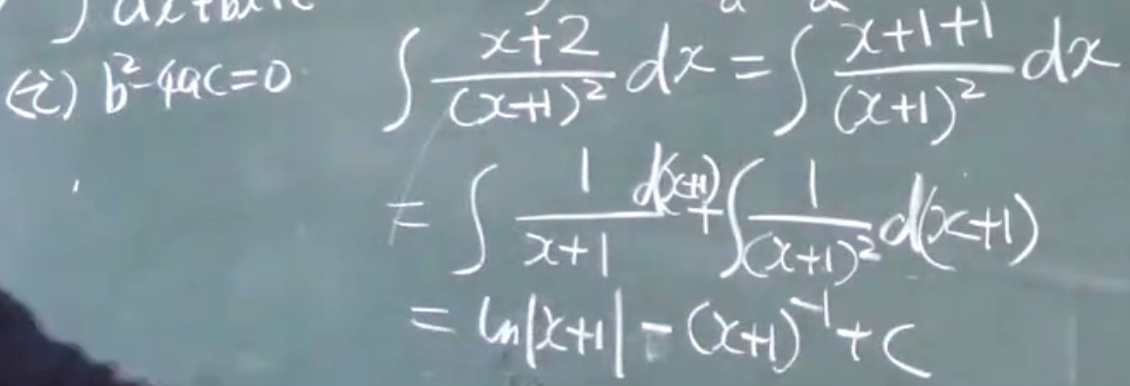 (二) b²-4ac=0 ∫ (x+2)/(x+1)² dx = ∫ (x+1+1)/(x+1)² dx
= ∫ 1/(x+1) d(x+1) + ∫ 1/(x+1)² d(x+1)
= ln|x+1| - (x+1)⁻¹ + C